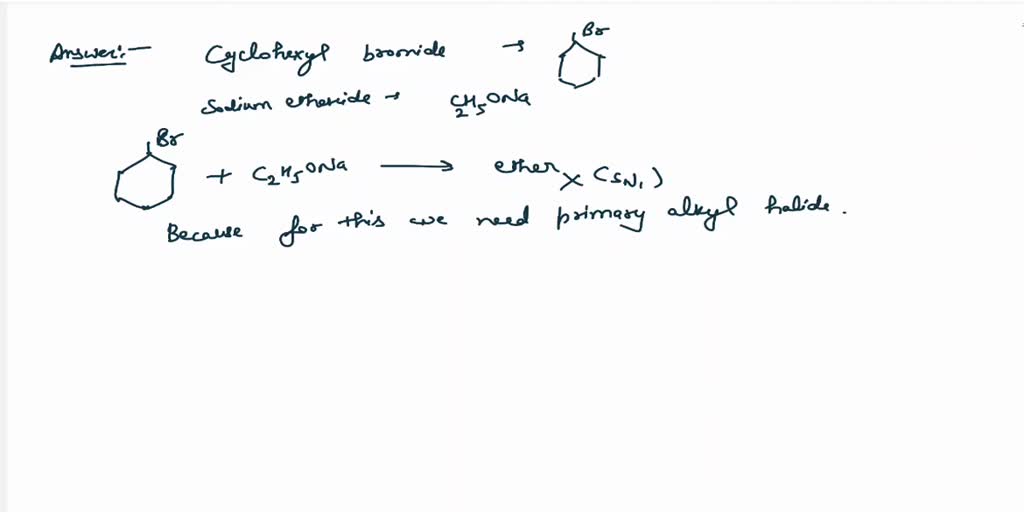 Answer:- Cyclohexyl bromide → Br
Sodium ethoxide → C2H5ONa
Br
+ C2H5ONa → ether × (SN1)
Because for this we need primary alkyl halide.